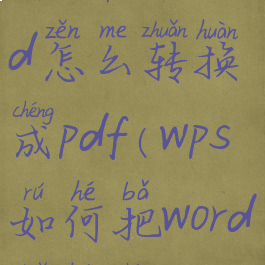 zěn me zhuǎn huàn
d怎么转换
chéng
成pdf(wps
rú hé bǎ
如何把word